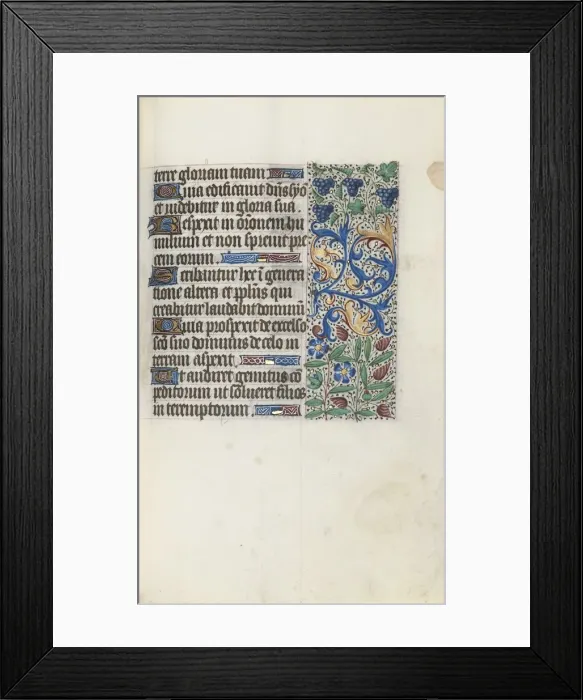 terre gloriam tuam
Quia edificavit dūs syō
et videbitur in gloria sua.
Respexit in orōnem hu
milium et non sprevit pre
cem eorum.
Scribantur hec ī genera
tione altera et pplūs qui
creabitur laudabit dominū
Quia prospexit de excelso
scō suo dominus de celo in
terram aspexit.
Ut audiret gemitus cō
peditorum ut solveret filios
in teremptorum